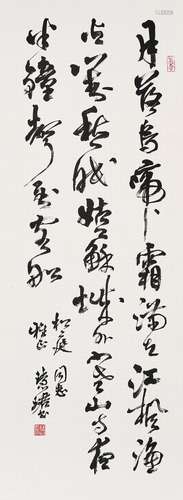 月落烏啼霜滿天江楓漁
火對愁眠姑蘇城外寒山寺夜
半鐘聲到客船
松庭同志
雅正
書